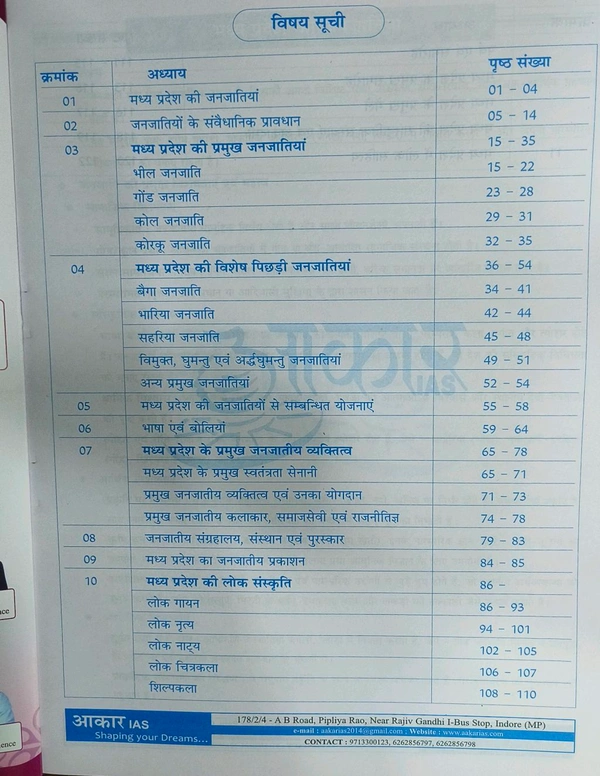 विषय सूची
क्रमांक अध्याय पृष्ठ संख्या
01 मध्य प्रदेश की जनजातियां 01 - 04
02 जनजातियों के संवैधानिक प्रावधान 05 - 14
03 मध्य प्रदेश की प्रमुख जनजातियां 15 - 35
भील जनजाति 15 - 22
गोंड जनजाति 23 - 28
कोल जनजाति 29 - 31
कोरकू जनजाति 32 - 35
04 मध्य प्रदेश की विशेष पिछड़ी जनजातियां 36 - 54
बैगा जनजाति 34 - 41
भारिया जनजाति 42 - 44
सहरिया जनजाति 45 - 48
विमुक्त, घुमन्तु एवं अर्द्धघुमन्तु जनजातियां 49 - 51
अन्य प्रमुख जनजातियां 52 - 54
05 मध्य प्रदेश की जनजातियों से सम्बन्धित योजनाएं 55 - 58
06 भाषा एवं बोलियां 59 - 64
07 मध्य प्रदेश के प्रमुख जनजातीय व्यक्तित्व 65 - 78
मध्य प्रदेश के प्रमुख स्वतंत्रता सेनानी 65 - 71
प्रमुख जनजातीय व्यक्तित्व एवं उनका योगदान 71 - 73
प्रमुख जनजातीय कलाकार, समाजसेवी एवं राजनीतिज्ञ 74 - 78
08 जनजातीय संग्रहालय, संस्थान एवं पुरस्कार 79 - 83
09 मध्य प्रदेश का जनजातीय प्रकाशन 84 - 85
10 मध्य प्रदेश की लोक संस्कृति 86 -
लोक गायन 86 - 93
लोक नृत्य 94 - 101
लोक नाट्य 102 - 105
लोक चित्रकला 106 - 107
शिल्पकला 108 - 110
आकार IAS
आकार IAS
Shaping your Dreams...
178/2/4 - A B Road, Pipliya Rao, Near Rajiv Gandhi I-Bus Stop, Indore (MP)
e-mail : aakarias2014@gmail.com ; Website : www.aakarias.com
CONTACT : 9713300123, 6262856797, 6262856798